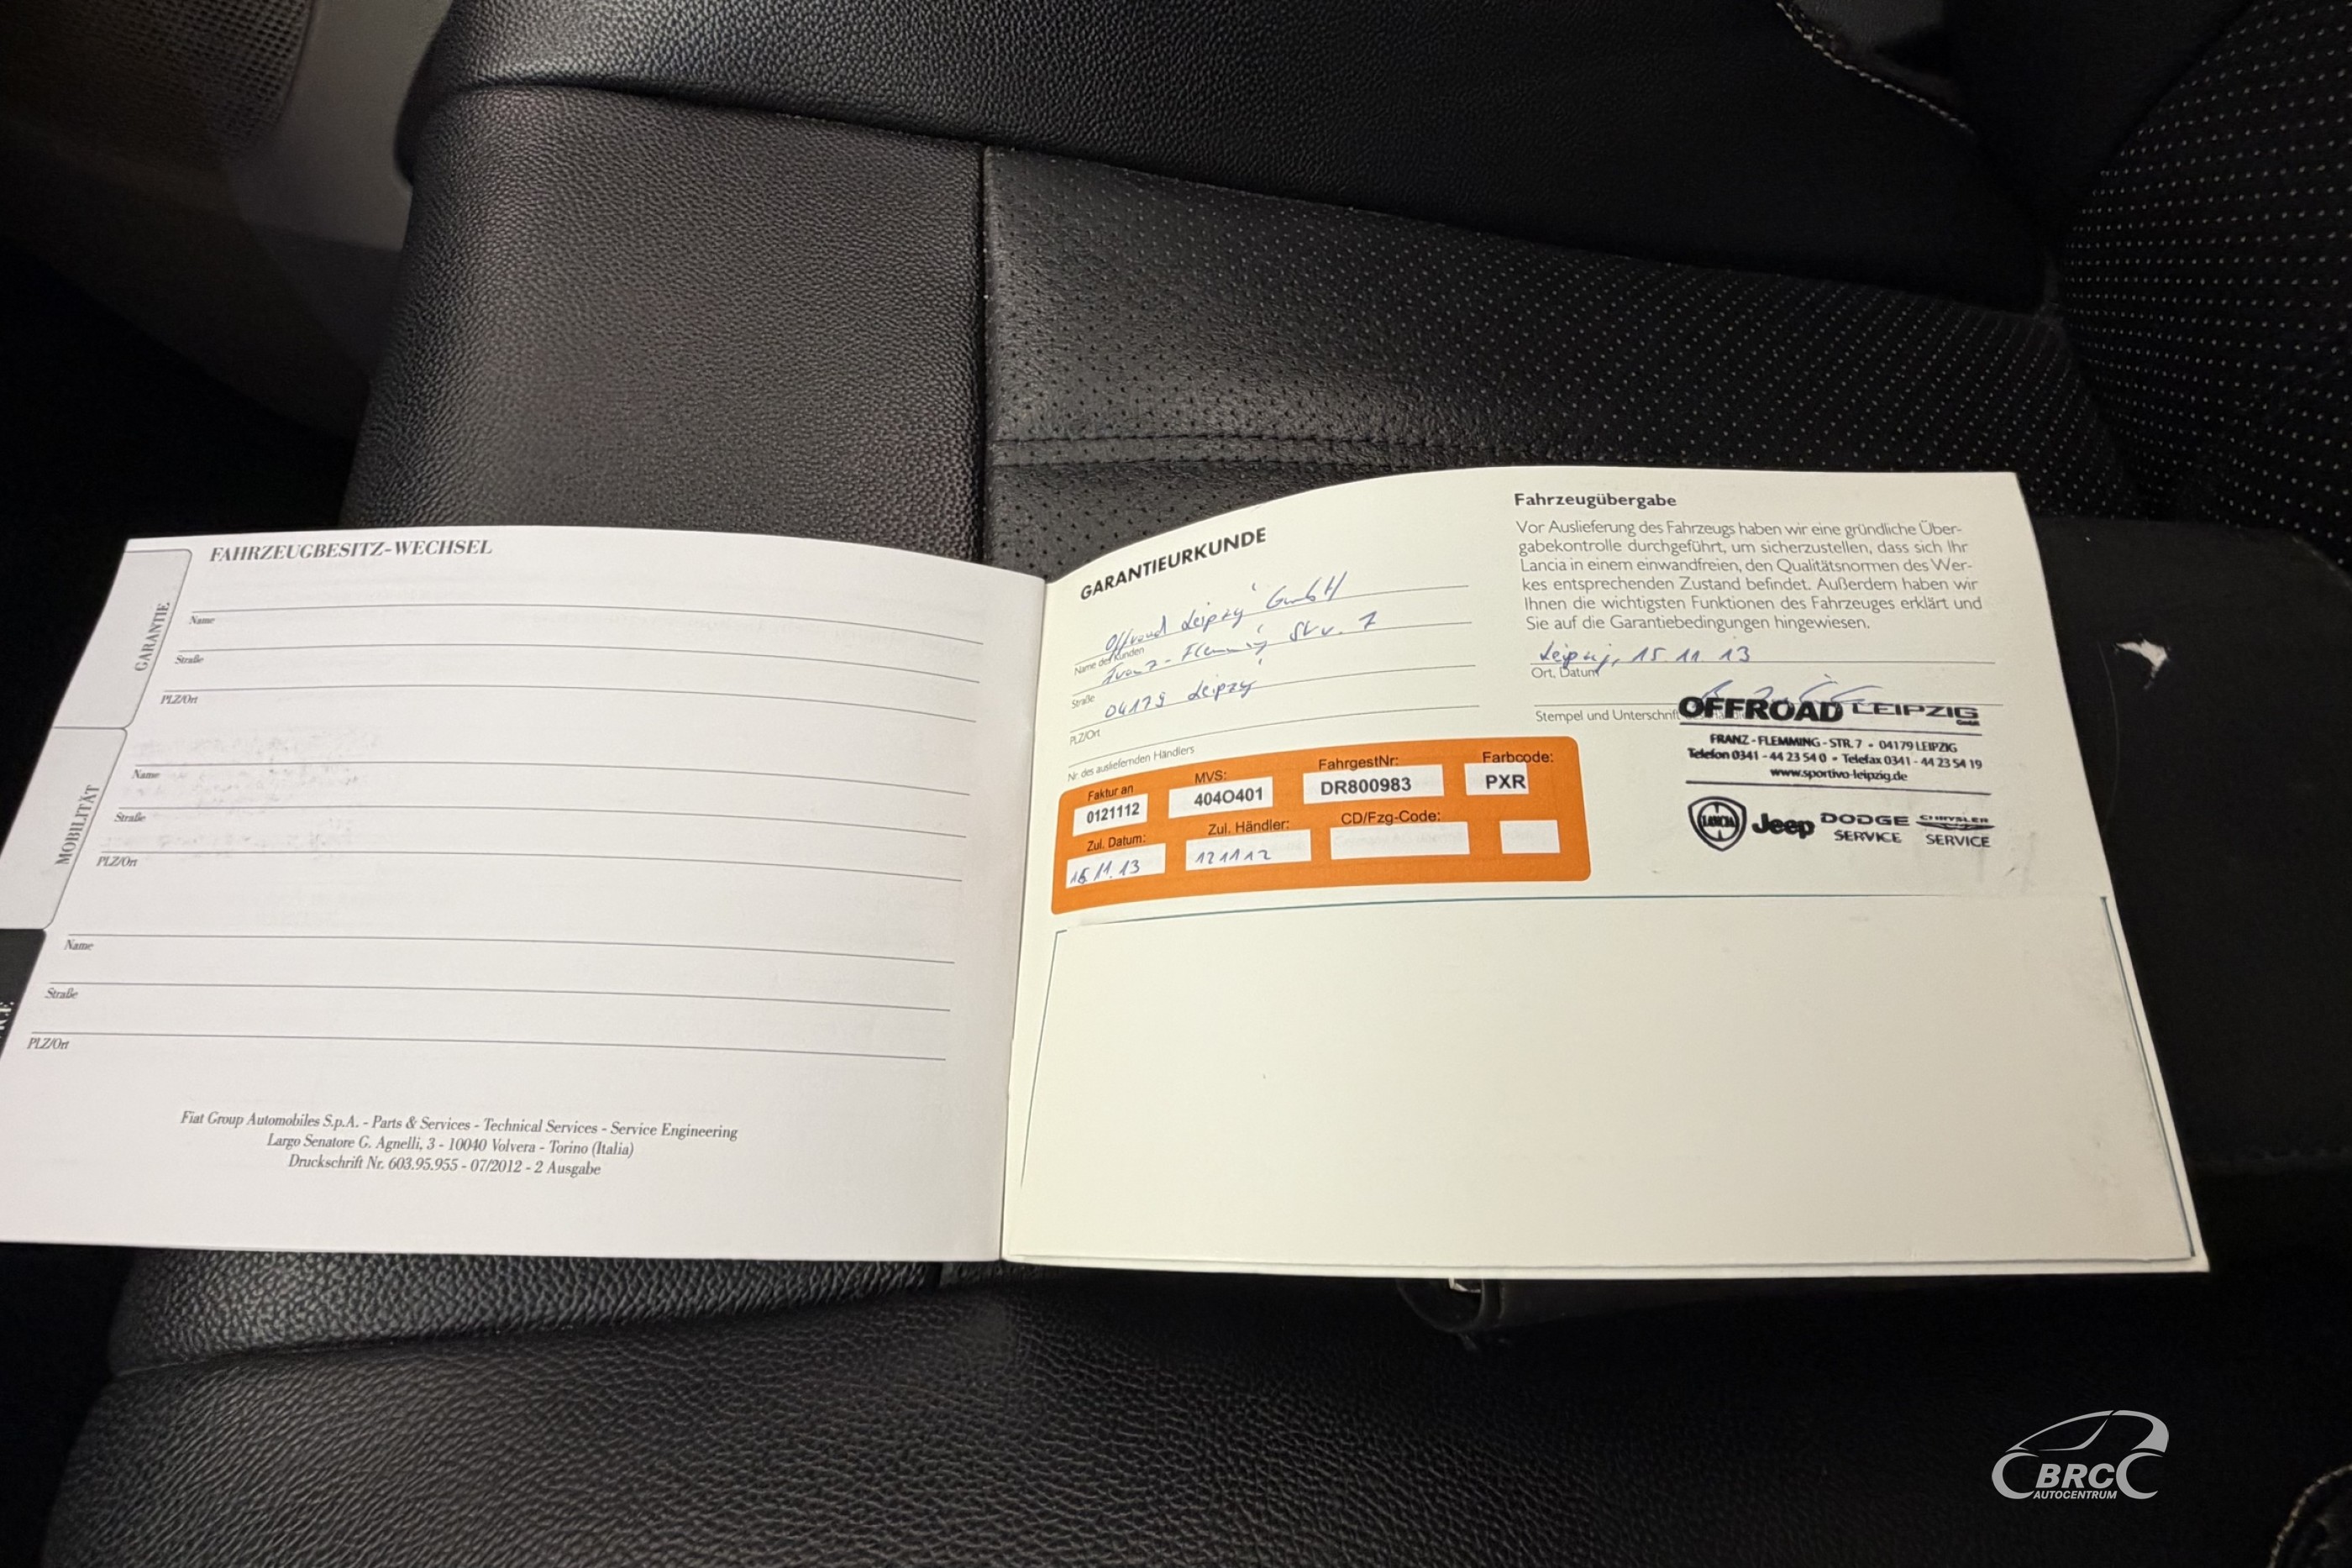 FAHRZEUGBESITZ-WECHSEL
GARANTIE
MOBILITÄT
Name
Straße
PLZ/Ort
Name
Straße
PLZ/Ort
Name
Straße
PLZ/Ort
Fiat Group Automobiles S.p.A. - Parts & Services - Technical Services - Service Engineering
Largo Senatore G. Agnelli, 3 - 10040 Volvera - Torino (Italia)
Druckschrift Nr. 603.95.955 - 07/2012 - 2 Ausgabe
GARANTIEURKUNDE
Offroad Leipzig GmbH
Name des Kunden
Franz-Flemming Str. 7
Straße
04179 Leipzig
PLZ/Ort
Nr. des ausliefernden Händlers
Faktur an MVS: FahrgestNr: Farbcode:
0121112 404O401 DR800983 PXR
Zul. Datum: Zul. Händler: CD/Fzg-Code:
15.11.13 121112
Fahrzeugübergabe
Vor Auslieferung des Fahrzeugs haben wir eine gründliche Über-
gabekontrolle durchgeführt, um sicherzustellen, dass sich Ihr
Lancia in einem einwandfreien, den Qualitätsnormen des Wer-
kes entsprechenden Zustand befindet. Außerdem haben wir
Ihnen die wichtigsten Funktionen des Fahrzeuges erklärt und
Sie auf die Garantiebedingungen hingewiesen.
Leipzig, 15.11.13
Ort, Datum
Stempel und Unterschrift
OFFROAD LEIPZIG GmbH
FRANZ-FLEMMING-STR. 7 • 04179 LEIPZIG
Telefon 0341 - 44 23 54 0 • Telefax 0341 - 44 23 54 19
www.sportivo-leipzig.de
LANCIA Jeep DODGE SERVICE CHRYSLER SERVICE
BRC
AUTOCENTRUM